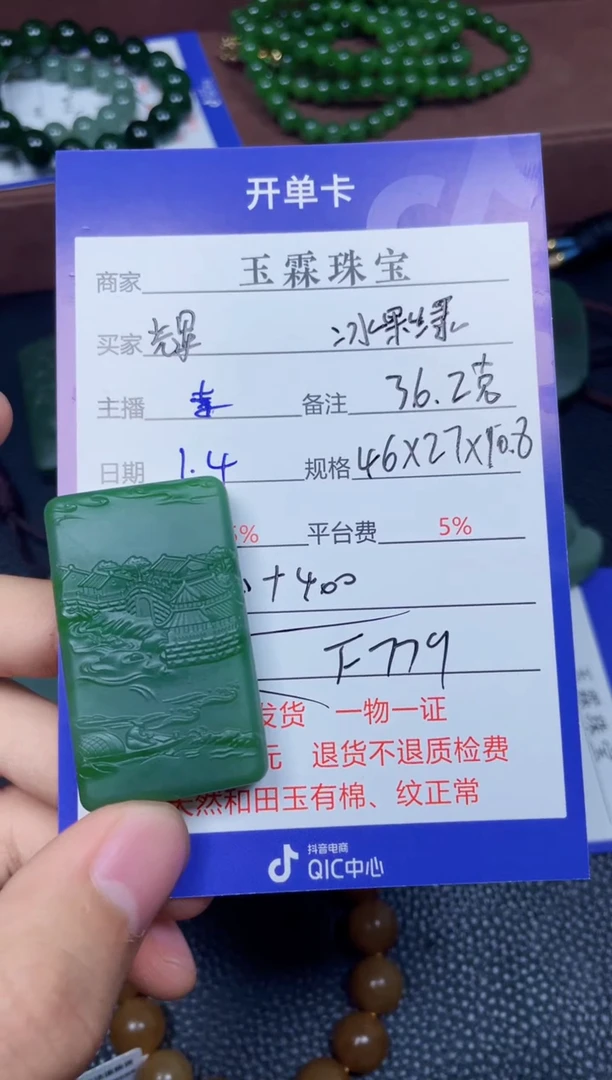 开单卡
商家 玉霖珠宝
买家 冰果绿
主播 备注 36.2克
日期 1.4 规格 46X27X10.8
5% 平台费 5%
+400
F779
发货 一物一证
元 退货不退质检费
天然和田玉有棉、纹正常
抖音电商
QIC中心